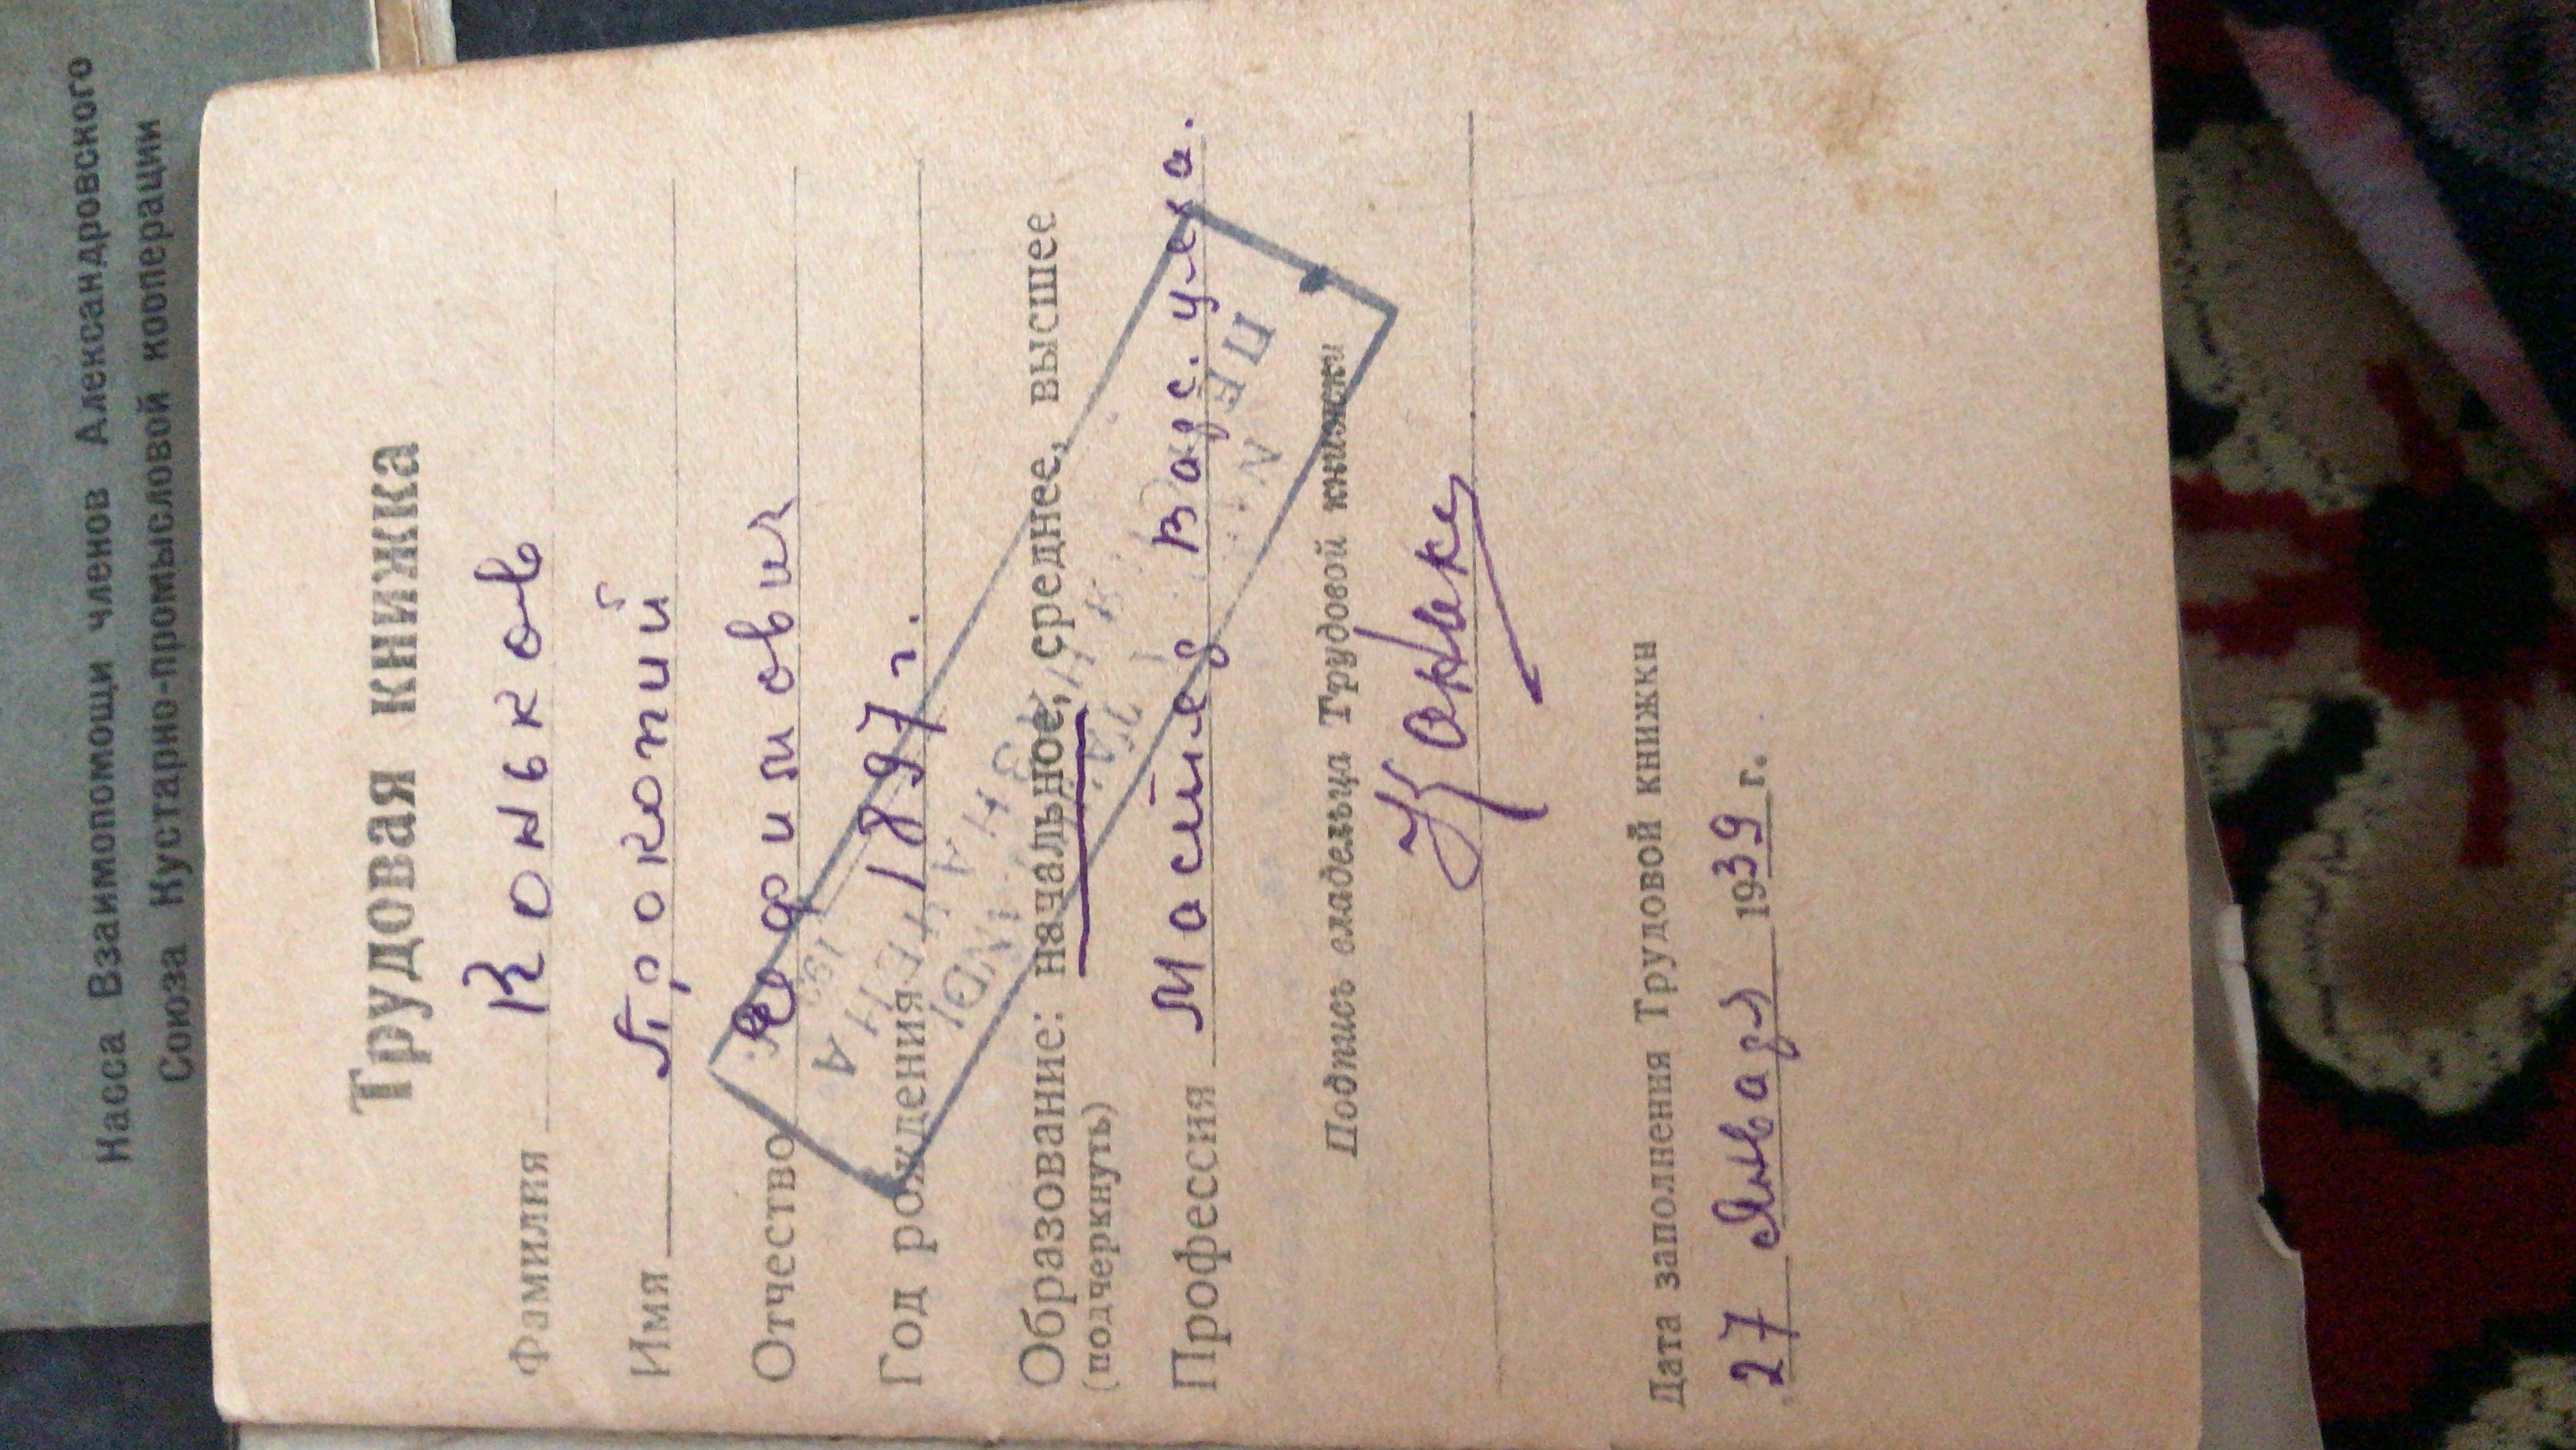 Касса Взаимопомощи членов Александровского
Союза Кустарно-промысловой кооперации
Трудовая книжка
Фамилия Коньков
Имя Прокопий
Отчество Ефимович
Год рождения 1897 г.
Образование: начальное, среднее, высшее
(подчеркнуть)
Профессия Мастер Вар. цеха.
Подпись владельца Трудовой книжки
Дата заполнения Трудовой книжки
27 Января 1939 г.